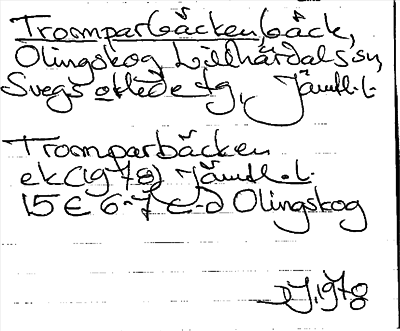 Tromparbäcken, bäck,
Olingskog, Lillhärdals sn,
Svegs tg, Jämtl. l.
Tromparbäcken
ek (1978) Jämtl. l.
15 E 6-7 c-d Olingskog
1978